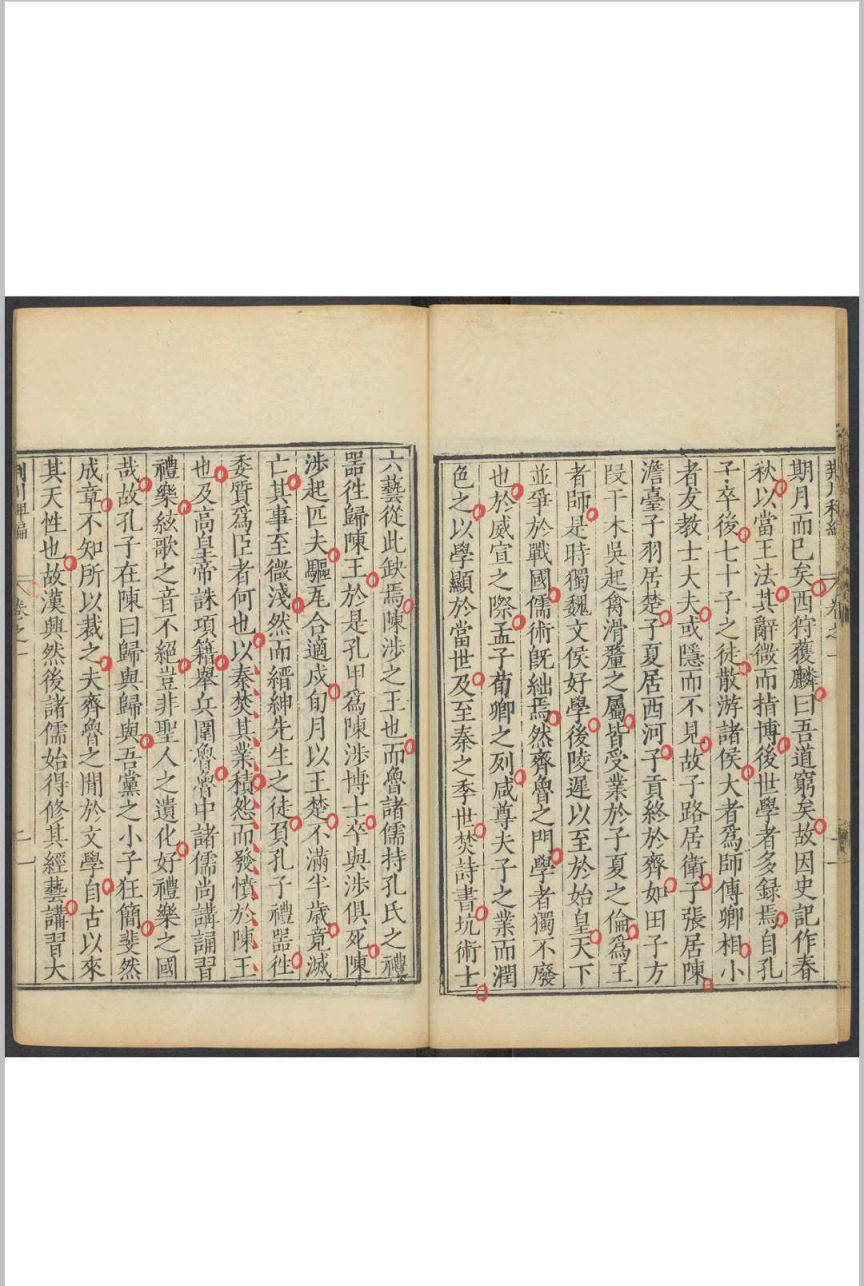 期月而已矣西狩獲麟曰吾道窮矣故因史記作春
秋以當王法其辭微而指博後世學者多録焉自孔
子卒後七十子之徒散游諸侯大者爲師傅卿相小
者友教士大夫或隱而不見故子路居衛子張居陳
澹臺子羽居楚子夏居西河子貢終於齊如田子方
段干木吳起禽滑釐之屬皆受業於子夏之倫爲王
者師是時獨魏文侯好學後陵遲以至於始皇天下
並爭於戰國儒術旣絀焉然齊魯之門學者獨不廢
也於威宣之際孟子荀卿之列咸尊夫子之業而潤
色之以學顯於當世及至秦之季世焚詩書坑術士
六藝從此缺焉陳涉之王也而魯諸儒持孔氏之禮
器徃歸陳王於是孔甲爲陳涉博士卒與涉俱死陳
涉起匹夫驅瓦合適戍旬月以王楚不滿半歳竟滅
亡其事至微淺然而縉紳先生之徒負孔子禮器徃
委質爲臣者何也以秦焚其業積怨而發憤於陳王
也及高皇帝誅項籍舉兵圍魯魯中諸儒尚講誦習
禮樂絃歌之音不絕豈非聖人之遺化好禮樂之國
哉故孔子在陳曰歸與歸與吾黨之小子狂簡斐然
成章不知所以裁之夫齊魯之閒於文學自古以來
其天性也故漢興然後諸儒始得修其經藝講習大
卷之一